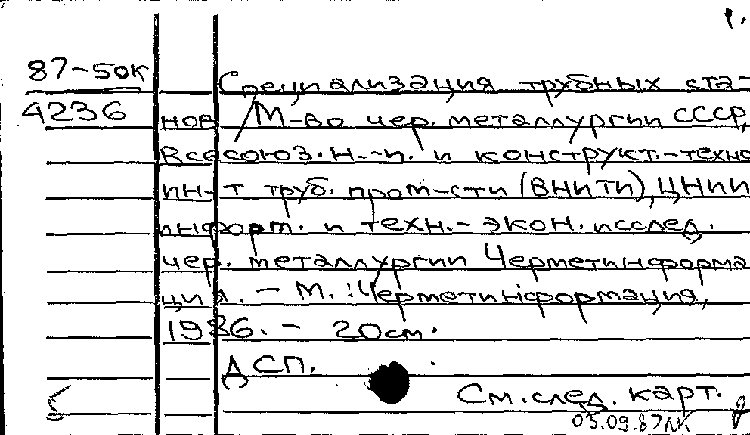 1.
87-50к Специализация трубных ста-
4236 нов / М-во чер. металлургии СССР,
Всесоюз. н.-и. и конструкт.-техно
ин-т труб. пром-сти (ВНИТИ), ЦНИИ
информ. и техн.-экон. исслед.
чер. металлургии Черметинформа
ция. - М.: Черметинформация,
1986. - 20 см.
ДСП.
См. след. карт.
05.09.87